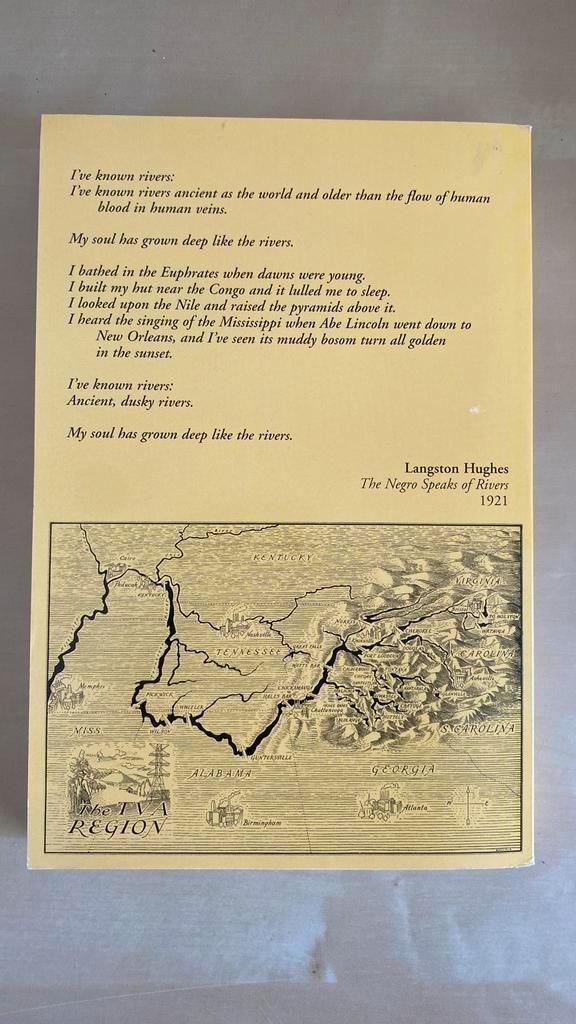 I've known rivers:
I've known rivers ancient as the world and older than the flow of human
blood in human veins.
My soul has grown deep like the rivers.
I bathed in the Euphrates when dawns were young.
I built my hut near the Congo and it lulled me to sleep.
I looked upon the Nile and raised the pyramids above it.
I heard the singing of the Mississippi when Abe Lincoln went down to
New Orleans, and I've seen its muddy bosom turn all golden
in the sunset.
I've known rivers:
Ancient, dusky rivers.
My soul has grown deep like the rivers.
Langston Hughes
The Negro Speaks of Rivers
1921
KENTUCKY
Cairo
Paducah
KENTUCKY
VIRGINIA
NORRIS
Nashville
GREAT FALLS
CHEROKEE
WATAUGA
TENNESSEE
WATTS BAR
FORT LOUDOUN
CAROLINA
Memphis
PICKWICK
CHICKAMAUGA
HALES BAR
Chattanooga
WHEELER
WILSON
MISS
GUNTERSVILLE
S CAROLINA
ALABAMA
GEORGIA
The TVA
REGION
Birmingham
Atlanta